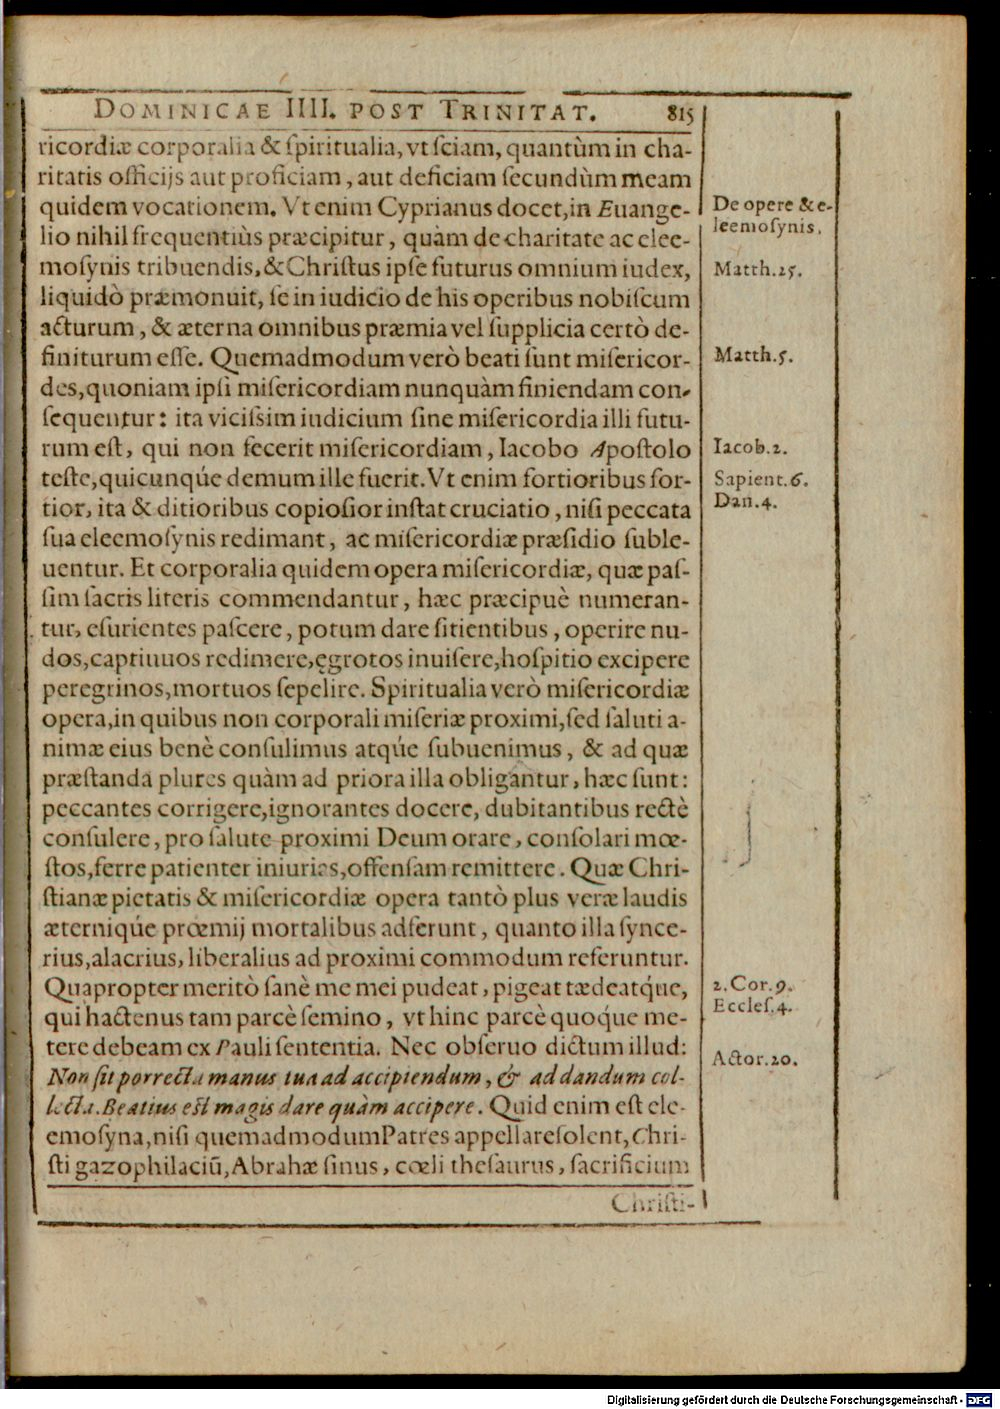 DOMINICAE IIII. POST TRINITAT. 815
ricordiæ corporalia & ſpiritualia, vt ſciam, quantùm in cha-
ritatis officijs aut proficiam, aut deficiam ſecundùm meam
quidem vocationem. Vt enim Cyprianus docet, in Euange-
lio nihil frequentiùs præcipitur, quàm de charitate ac elee-
moſynis tribuendis, & Chriſtus ipſe futurus omnium iudex,
liquidò præmonuit, ſe in iudicio de his operibus nobiſcum
acturum, & æterna omnibus præmia vel ſupplicia certò de-
finiturum eſſe. Quemadmodum verò beati ſunt miſericor-
des, quoniam ipſi miſericordiam nunquàm finiendam con-
ſequentur: ita viciſsim iudicium ſine miſericordia illi futu-
rum eſt, qui non fecerit miſericordiam, Iacobo Apoſtolo
teſte, quicunqúe demum ille fuerit. Vt enim fortioribus for-
tior, ita & ditioribus copioſior inſtat cruciatio, niſi peccata
ſua eleemoſynis redimant, ac miſericordiæ præſidio ſuble-
uentur. Et corporalia quidem opera miſericordiæ, quæ paſ-
ſim ſacris literis commendantur, hæc præcipuè numeran-
tur, eſurientes paſcere, potum dare ſitientibus, operire nu-
dos, captiuuos redimere, ęgrotos inuiſere, hoſpitio excipere
peregrinos, mortuos ſepelire. Spiritualia verò miſericordiæ
opera, in quibus non corporali miſeriæ proximi, ſed ſaluti a-
nimæ eius benè conſulimus atqúe ſubuenimus, & ad quæ
præſtanda plures quàm ad priora illa obligantur, hæc ſunt:
peccantes corrigere, ignorantes docere, dubitantibus rectè
conſulere, pro ſalute proximi Deum orare, conſolari mœ-
ſtos, ferre patienter iniurias, offenſam remittere. Quæ Chri-
ſtianæ pietatis & miſericordiæ opera tantò plus veræ laudis
æterniqúe prœmij mortalibus adferunt, quanto illa ſynce-
rius, alacrius, liberalius ad proximi commodum referuntur.
Quapropter meritò ſanè me mei pudeat, pigeat tædeatq́ue,
qui hactenus tam parcè ſemino, vt hinc parcè quoq́ue me-
tere debeam ex Pauli ſententia. Nec obſeruo dictum illud:
Non ſit porrecta manus tua ad accipiendum, & ad dandum col-
lecta. Beatius eſt magis dare quàm accipere. Quid enim eſt ele-
emoſyna, niſi quemadmodum Patres appellare ſolent, Chri-
ſti gazophilaciũ, Abrahæ ſinus, cœli theſaurus, ſacrificium
Chriſti-
De opere & e-
leemoſynis.
Matth. 25.
Matth. 5.
Iacob. 2.
Sapient. 6.
Dan. 4.
2. Cor. 9.
Eccleſ. 4.
Actor. 20.
Digitalisierung gefördert durch die Deutsche Forschungsgemeinschaft - DFG